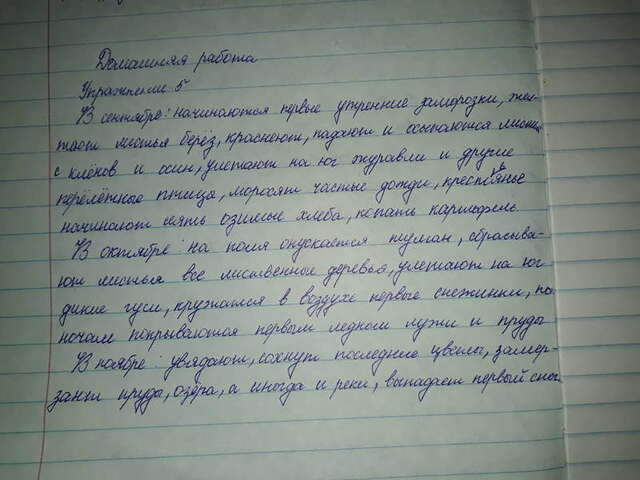 Домашняя работа
Упражнение 5
В сентябре: начинаются первые утренние заморозки, жел-
теют листья берёз, краснеют, падают и осыпаются листья
с клёнов и осин, улетают на юг журавли и другие
перелётные птица, моросят частые дожди, крестьянье
начинают сеять озимые хлеба, копать картофель
В октябре: на поля опускается туман, сбрасыва-
ют листья все лиственные деревья, улетают на юг
дикие гуси, кружатся в воздухе первые снежинки, по
ночам покрываются первым ледком лужи и пруды
В ноябре: увядают, сохнут последние цветы, замер-
зают пруды, озёра, а иногда и реки, выпадает первый снег